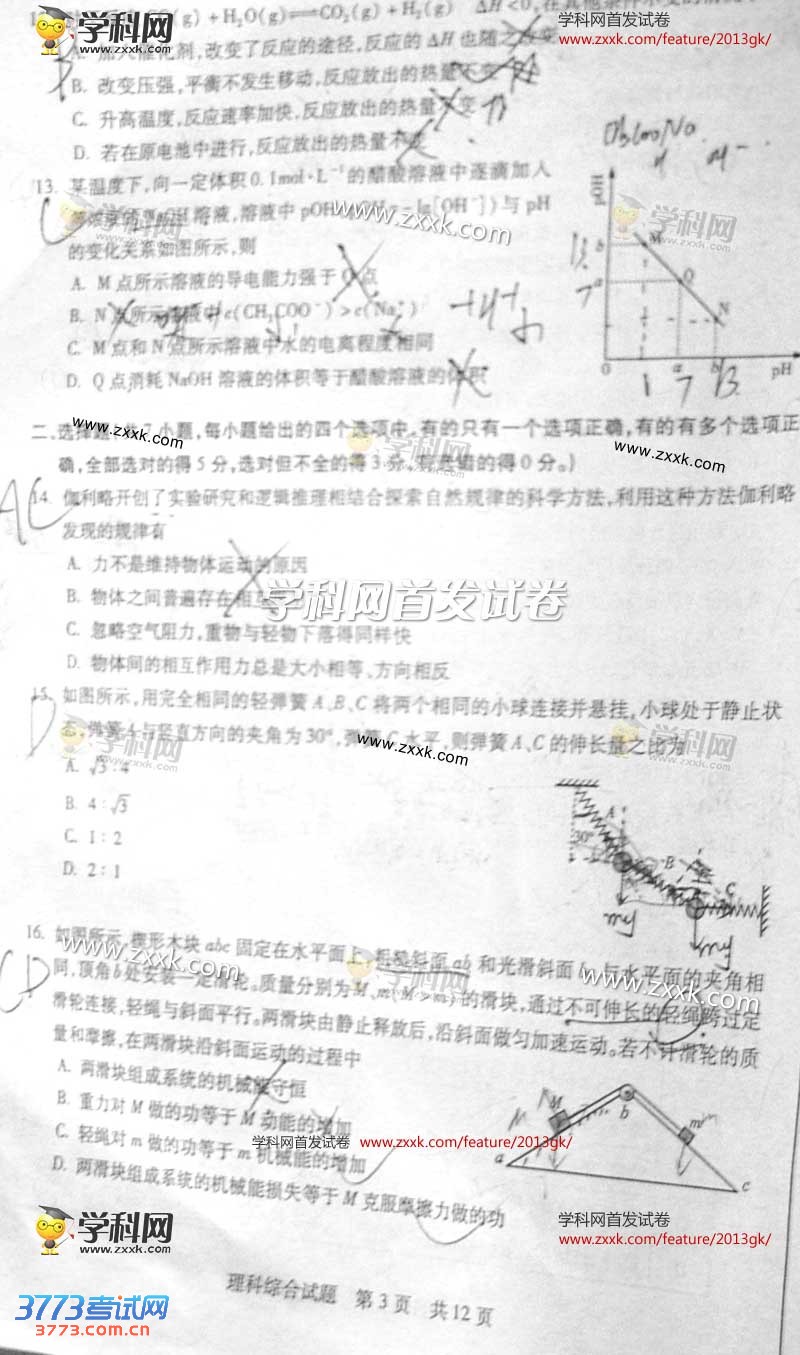 CO(g) + H₂O(g) ⇌ CO₂(g) + H₂(g) ΔH<0,在
学科网
www.zxxk.com
学科网首发试卷
www.zxxk.com/feature/2013gk/
A. 加入催化剂,改变了反应的途径,反应的 ΔH 也随之改变
B. 改变压强,平衡不发生移动,反应放出的热量不变
C. 升高温度,反应速率加快,反应放出的热量不变
D. 若在原电池中进行,反应放出的热量不变
13. 某温度下,向一定体积 0.1mol·L⁻¹ 的醋酸溶液中逐滴加入
溶液,溶液中 pOH lg[OH⁻])与 pH
www.zxxk.com
的变化关系如图所示,则
A. M 点所示溶液的导电能力强于 Q 点
B. N 点所示溶液中 c(CH₃COO⁻)>c(Na⁺)
C. M 点和 N 点所示溶液中水的电离程度相同
D. Q 点消耗 NaOH 溶液的体积等于醋酸溶液的体积
pOH
b
a
M
Q
N
0
a
b
pH
1 7 13
学科网
www.zxxk.com
二、选择题 共7小题,每小题给出的四个选项中,有的只有一个选项正确,有的有多个选项正
确,全部选对的得5分,选对但不全的得3分,有选错的得0分。)
www.zxxk.com
www.zxxk.com
AC
14. 伽利略开创了实验研究和逻辑推理相结合探索自然规律的科学方法,利用这种方法伽利略
发现的规律有
A. 力不是维持物体运动的原因
B. 物体之间普遍存在相互
学科网首发试卷
C. 忽略空气阻力,重物与轻物下落得同样快
D. 物体间的相互作用力总是大小相等、方向相反
D
15. 如图所示,用完全相同的轻弹簧 A、B、C 将两个相同的小球连接并悬挂,小球处于静止状
态,弹簧 A 与竖直方向的夹角为 30°,弹簧 C 水平,则弹簧 A、C 的伸长量之比为
学科网
www.zxxk.com
www.zxxk.com
A. √3:4
B. 4:√3
C. 1:2
D. 2:1
A
30°
B
C
mg
mg
CD
16. 如图所示,楔形木块 abc 固定在水平面上,粗糙斜面 ab 和光滑斜面 bc 与水平面的夹角相
同,顶角 b 处安装一定滑轮。质量分别为 M、m(M>m)的滑块,通过不可伸长的轻绳跨过定
滑轮连接,轻绳与斜面平行。两滑块由静止释放后,沿斜面做匀加速运动。若不计滑轮的质
量和摩擦,在两滑块沿斜面运动的过程中
www.zxxk.com
www.zxxk.com
A. 两滑块组成系统的机械能守恒
B. 重力对 M 做的功等于 M 动能的增加
C. 轻绳对 m 做的功等于 m 机械能的增加
D. 两滑块组成系统的机械能损失等于 M 克服摩擦力做的功
M
b
m
a
c
学科网首发试卷 www.zxxk.com/feature/2013gk/
学科网
www.zxxk.com
学科网首发试卷
www.zxxk.com/feature/2013gk/
理科综合试题 第3页 共12页
3773考试网
3773.com.cn